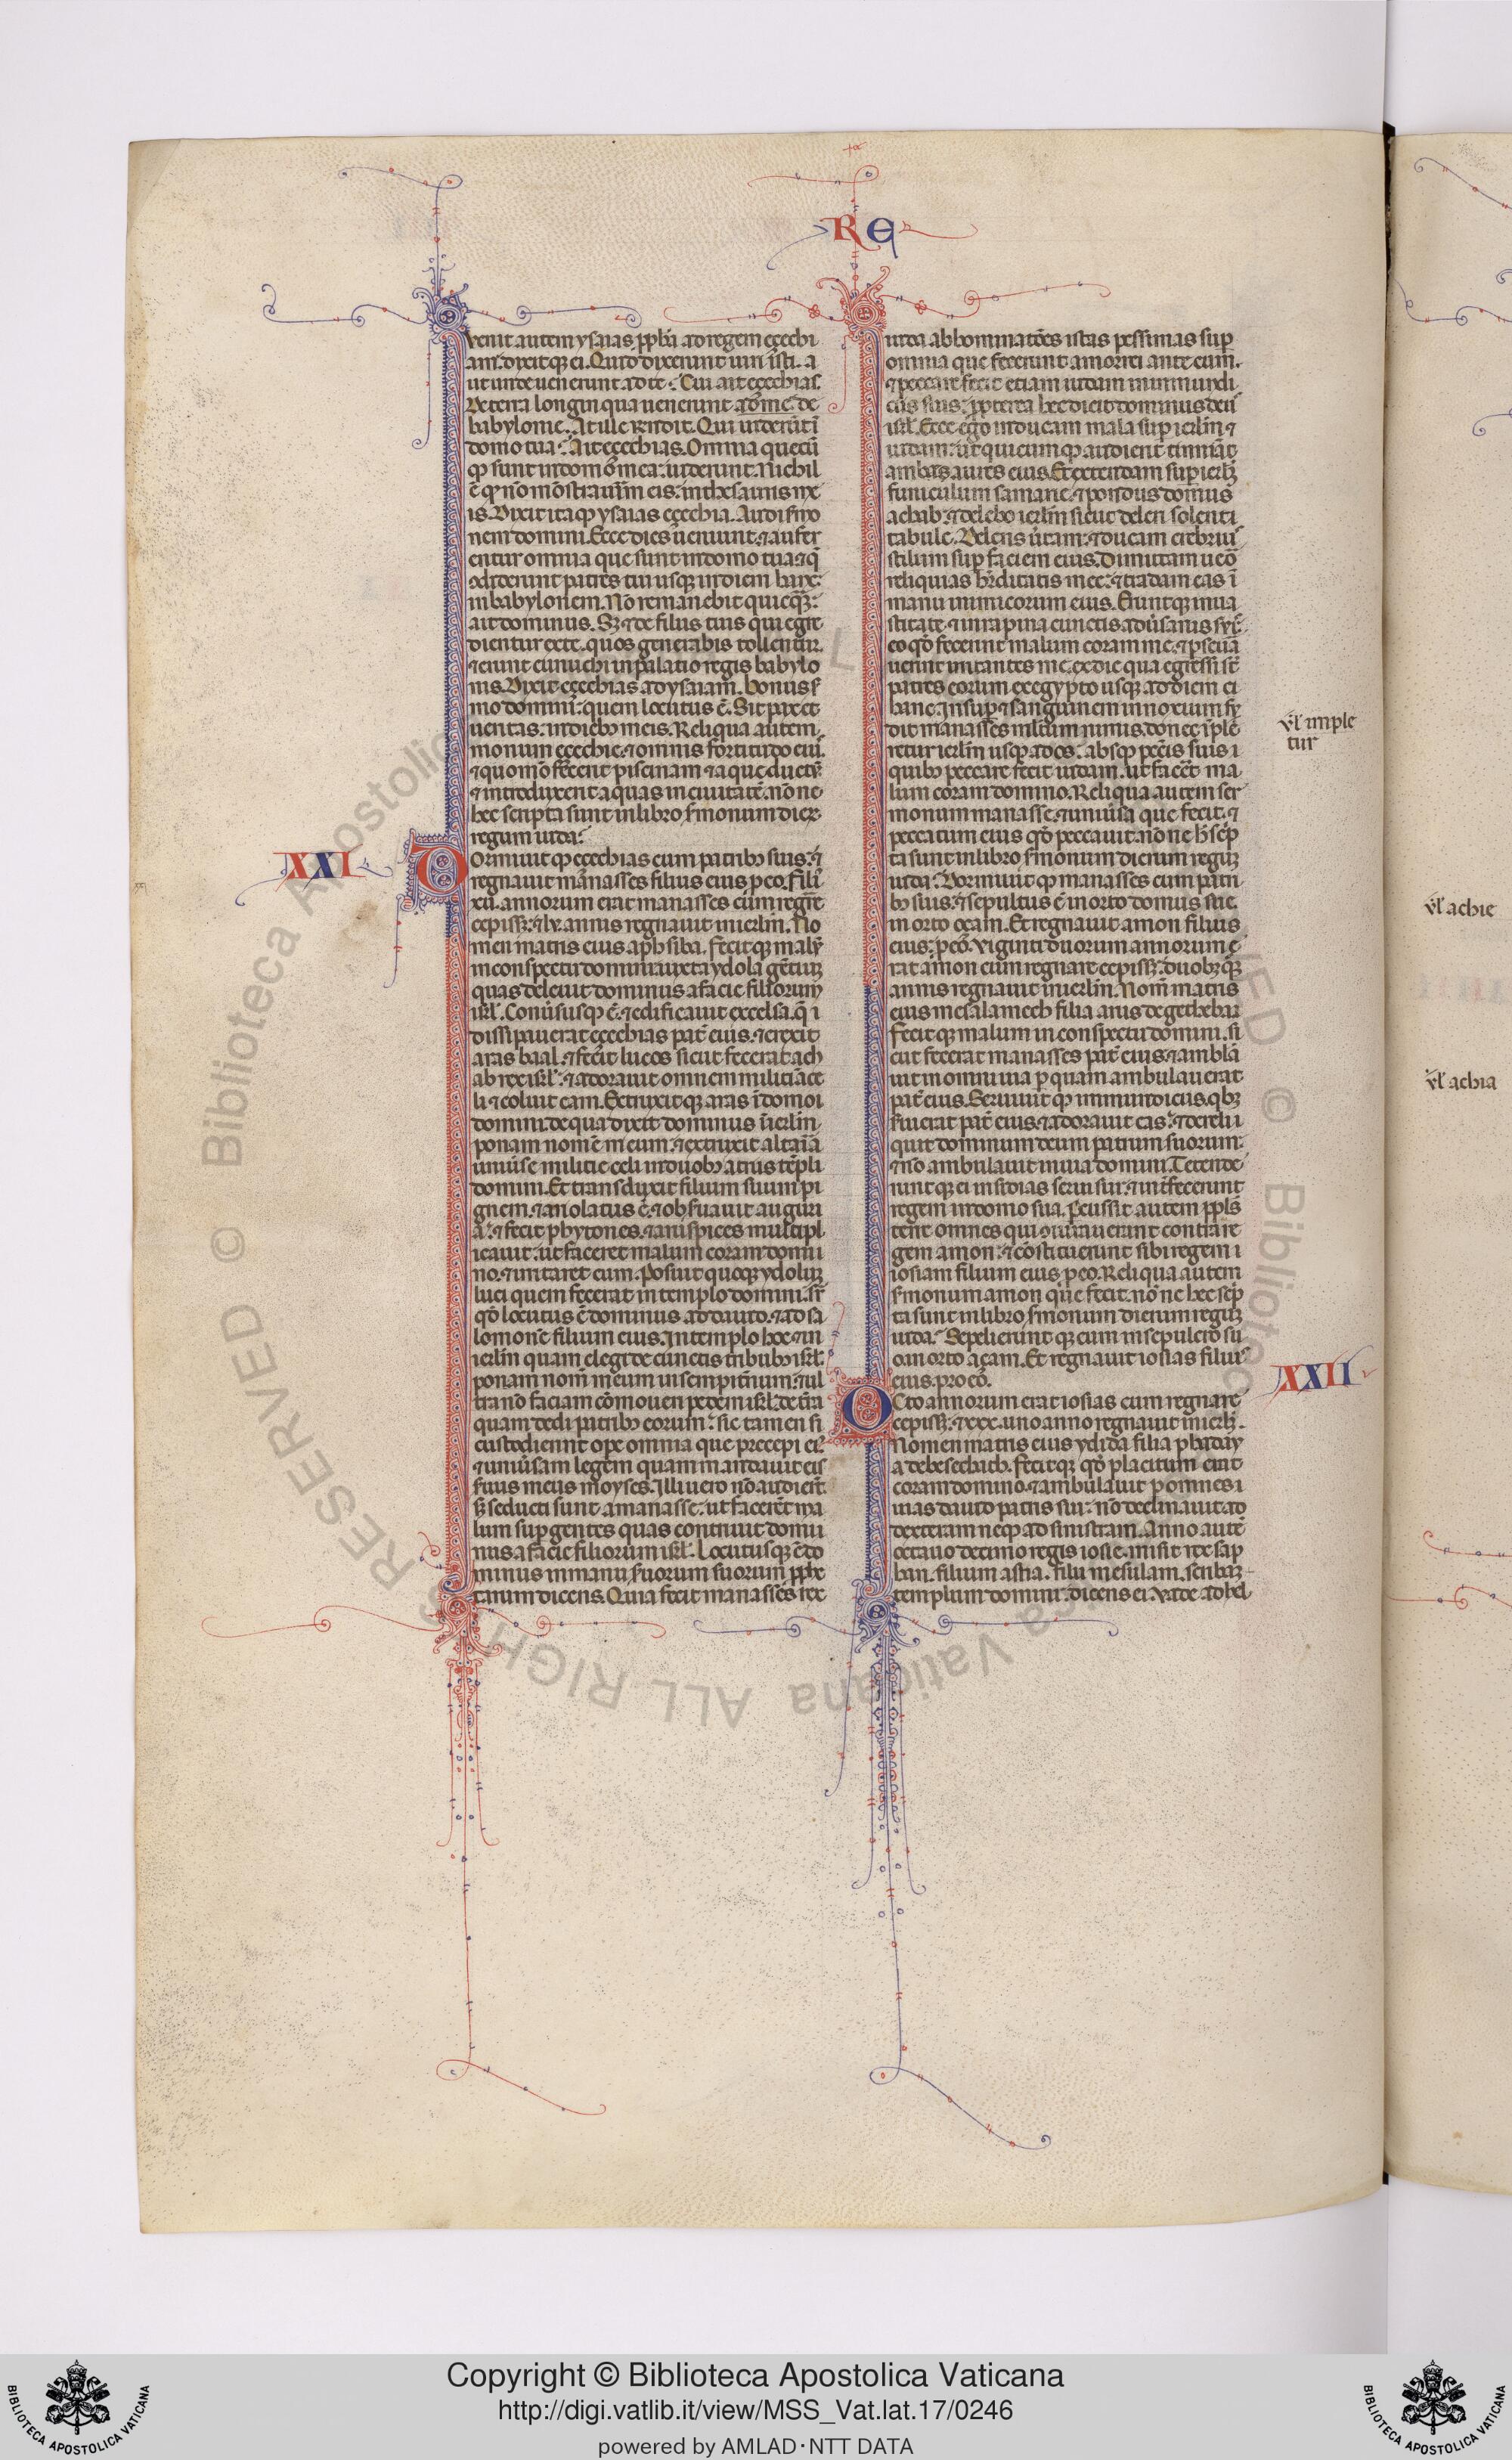 RE
venit autem ysaias ppħa ad regem ezechi
am. dixitqƺ ei. Quid dixerunt uiri isti. a
ut unde uenerunt ad te. Cui ait ezechias.
De terra longinqua uenerunt ad me. de
babylone. At ille rñdit. Qui uiderũt ĩ
domo tua. Ait ezechias. Omnia quecũ
qƺ sunt in domo mea: uiderunt. Nichil
ẽ qƺ nõ mõstrauim eis: in thesauris me
is. Dixit itaqƺ ysaias ezechia. Audi smo
nem domini. Ecce dies ueniunt. ⁊ aufer
entur omnia que sunt in domo tua. ⁊ q̃
ↄdiderunt patres tui usqƺ in diem hanc:
in babylonem. Nõ remanebit quicq̃ƺ:
ait dominus. Sƺ ⁊ de filiis tuis qui egre
dientur ex te. quos generabis tollentur.
⁊ erunt eunuchi in palatio regis babylo
nis. Dixit ezechias ad ysaiam. Bonus s̃
mo domini: quem locutus ẽ. Sit pax et
ueritas: in diebƺ meis. Reliqua autem
monum ezechie. ⁊ omnis fortitudo eiu.
⁊ quomõ fecerit piscinam ⁊ aque ductũ
⁊ introduxerit aquas in ciuitatẽ. nõne
hec scripta sunt in libro smonum dierꝝ
regum iuda:
XXI
Dormiuit qƺ ezechias cum patribƺ suis: ⁊
regnauit manasses filius eius p eo. Fili
xii. annorum erat manasses cum regre
cepissƺ: ⁊ lv. annis regnauit in ierlm. No
men matris eius. aphsiba. fecit qƺ malũ
in conspectu domini: iuxta ydola gẽtiuƺ
quas deleuit dominus a facie filiorum
isrl. Conũsusqƺ ẽ. ⁊ edificauit excelsa. q̃ ĩ
dissipauerat ezechias pat̃ eius. ⁊ erexit
aras baal. ⁊ fecit lucos sicut fecerat ach
ab rex isrl. ⁊ adorauit omnem militiã ce
li ⁊ coluit eam. Extruxit qƺ aras ĩ domoi
domini. de qua dixit dominus ĩ ierlm
ponam nomẽ meum. ⁊ extruxit altaria
uniũse militie celi in duobƺ atriis tẽpli
domini. Et transduxit filium suum pi
gnem. ⁊ ariolatus ẽ. ⁊ obsuauit auguri
a. ⁊ fecit phytones. ⁊ aruspices multipl
icauit. ut faceret malum coram domi
no. ⁊ irritaret eum. Posuit quoqƺ ydoluƺ
luci quem fecerat in templo domini. sr̃
qð locutus ẽ dominus ad dauid. ⁊ ad sa
lomonẽ filium eius. In templo hoc ⁊ in
ierlm quam elegi de cunctis tribubƺ isrl:
ponam nom̃ meum in sempit̃num. ⁊ ul
tra nõ faciam cõmoueri pedem isrl. de t̃ra
quam dedi patribƺ eorum. sic tamen si
custodierint ope omnia que precepi ei
⁊ uniũsam legem quam mandauit eis
suus meus moyses. Illi uero nõ audier̃t.
sƺ seducti sunt a manasse. ut facerẽt ma
lum sup gentes quas contriuit domi
nus a facie filiorum isrl. Locutusqƺ ẽ do
minus in manu suorum suorum pphe
tarum dicens. Quia fecit manasses rex
iuda abhominatões istas pessimas sup
omnia que fecerunt amorrei ante eum.
⁊ peccare fecit etiam iudam in inmundi
ciis suis: ppterea hec dicit dominus deus
isrl. Ecce ego inducam mala sup ierlm ⁊
iudam: ut quicumqƺ audierit tinniãt
ambas aures eius. Et extendam sup ierlƺ
funiculum samarie. ⁊ pondus domus
achab: ⁊ delebo ierlm sicut deleri solent
tabule. Delens ũtam: ⁊ ducam crebriu
stilum sup faciem eius. Dimittam ueõ
reliquias hr̃ditatis mee: ⁊ tradam eas ĩ
manu inimicorum eius. Eruntqƺ in ua
stitate. ⁊ in rapina cunctis aduersariis suis:
eo qð fecerint malum coram me. ⁊ pseua
uerint irritantes me. ex die qua egressi st̃
patres eorum ex egypto usqƺ ad diem
hanc. Insup ⁊ sanguinem innoxium fu
dit manasses m̃ltum nimis. donec ĩple
retur ierlm usqƺ ad os: absqƺ pctis suis ĩ
vl imple
tur
quibƺ peccare fecit iudam. ut facer̃t ma
lum coram domino. Reliqua autem ser
monum manasse. ⁊ uniũsa que fecit. ⁊
peccatum eius qð peccauit. nõne h̃ scrip
ta sunt in libro smonum dierum reguƺ
iuda. Dormiuit qƺ manasses cum patri
bƺ suis: ⁊ sepultus ẽ in orto domus sue.
in orto ozam. Et regnauit amon filius
vl achie
eius: p eo. viginti duorum annorum e
rat amon cum regnare cepissƺ. duobƺ qƺ
annis regnauit in ierlm. Nom̃ matris
eius mesalamech filia arus de gethebar
Fecit qƺ malum in conspectu domini. si
cut fecerat manasses pat̃ eius. ⁊ ambla
uit in omni uia p quam ambulauerat
vl achia
pat̃ eius. Seruiuit qƺ inmundiciis. qbƺ
suierat pat̃ eius. ⁊ adorauit eas. ⁊ dereli
quit dominum deum patrum suorum:
⁊ nõ ambulauit in uia domini. Tetende
runt qƺ ei insidias serui sui. ⁊ int̃fecerunt
regem in domo sua. Pcussit autem ppls
terre omnes qui ↄiurauerant contra re
gem amon: ⁊ cõstituerunt sibi regem i
iosiam filium eius p eo. Reliqua autem
smonum amon que fecit. nõne hec scrip
ta sunt in libro smonum dierum reguƺ
iuda. Sepelierunt qƺ eum in sepulcro su
o in orto açam. Et regnauit iosias filius
eius. pro eo.
XXII
Octo annorum erat iosias cum regnare
cepissƺ: ⁊ xxx. uno anno regnauit in ierlƺ.
Nomen matris eius ydida filia phaday
a de besechath. fecitqƺ qð placitum erat
coram domino. ⁊ ambulauit p omnes i
uias dauid patris sui: nõ declinauit ad
dexteram neqƺ ad sinistram. Anno autẽ
octauo decimo regis iosie. misit rex sap
han. filium aslia. filii mesulam. scribaƺ
templum domini: dicens ei. Vade ad hel
Copyright © Biblioteca Apostolica Vaticana
http://digi.vatlib.it/view/MSS_Vat.lat.17/0246
powered by AMLAD·NTT DATA
BIBLIOTECA APOSTOLICA VATICANA
BIBLIOTECA APOSTOLICA VATICANA
© Biblioteca Apostolica Vaticana ALL RIGHTS RESERVED